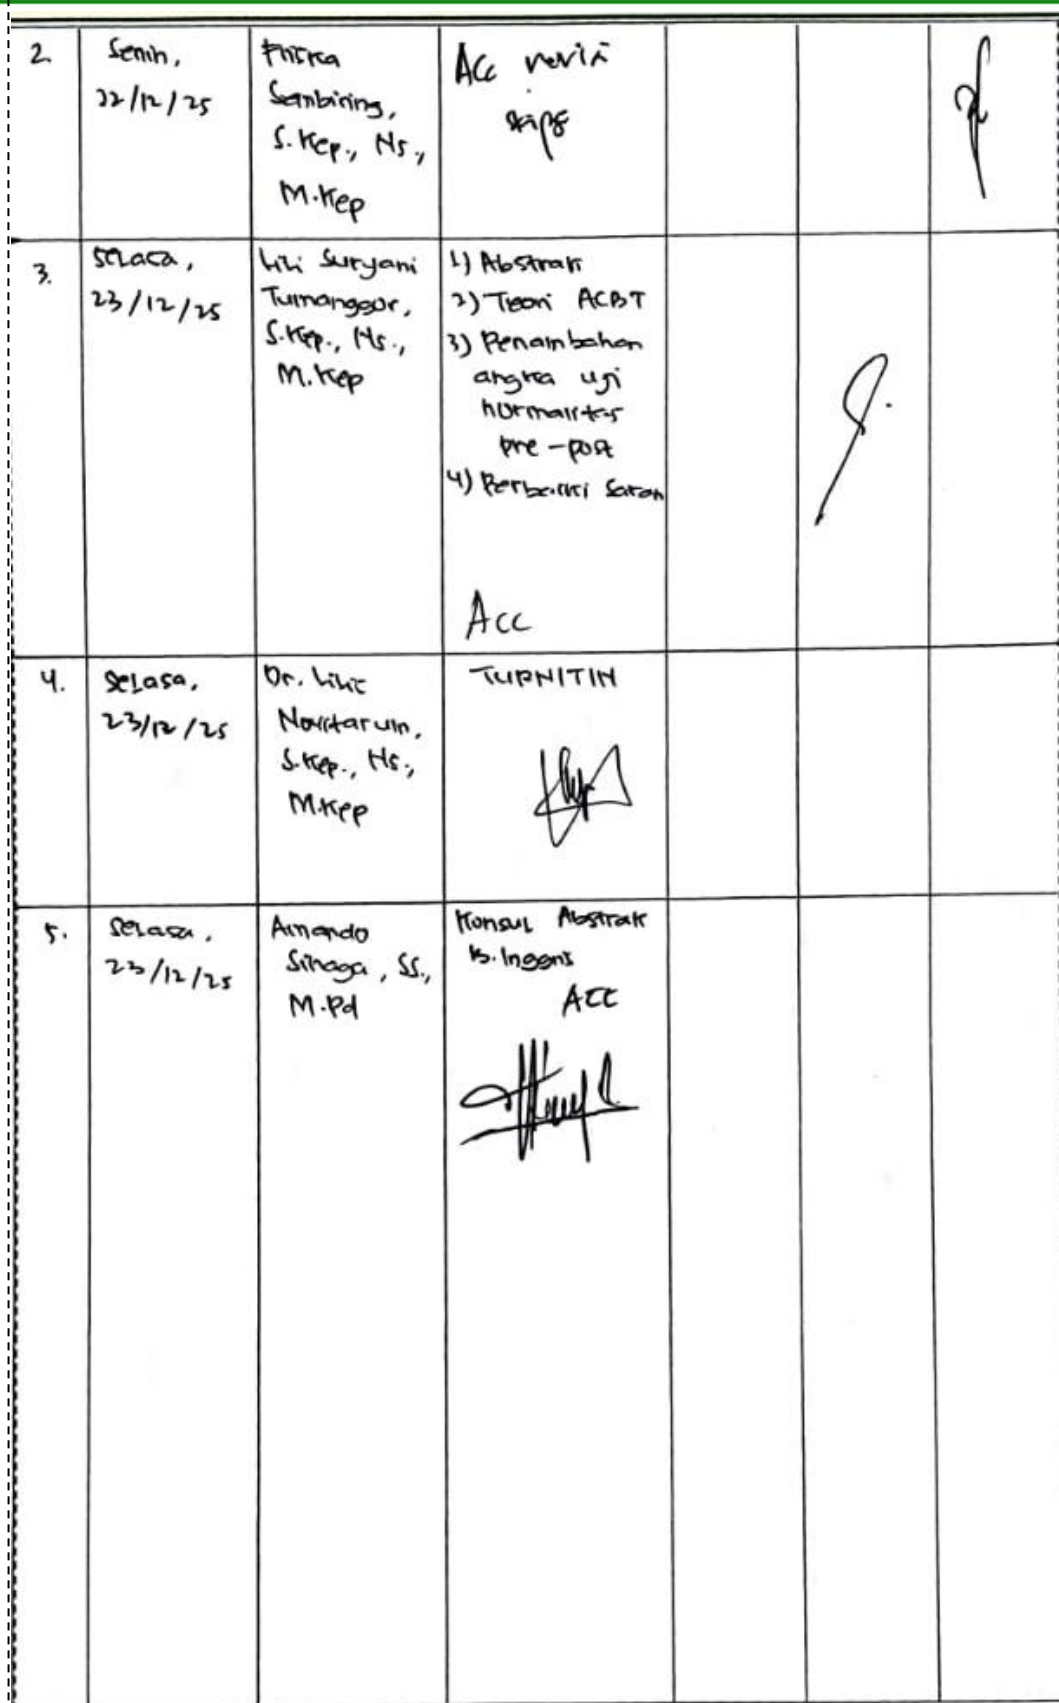 2.
Senin,
22/12/25
Friska
Sembiring,
S.Kep., Ns.,
M.Kep
Acc revisi
3.
Selasa,
23/12/25
Lili Suryani
Tumanggor,
S.Kep., Ns.,
M.Kep
1) Abstrak
2) Teori ACBT
3) Penambahan
angka uji
normalitas
pre-post
4) Perbaiki Saran
Acc
4.
Selasa,
23/12/25
Dr. Lilis
Novitarum,
S.Kep., Ns.,
M.Kep
TURNITIN
5.
Selasa,
23/12/25
Amando
Sinaga, SS.,
M.Pd
Konsul Abstrak
B. Inggris
ACC